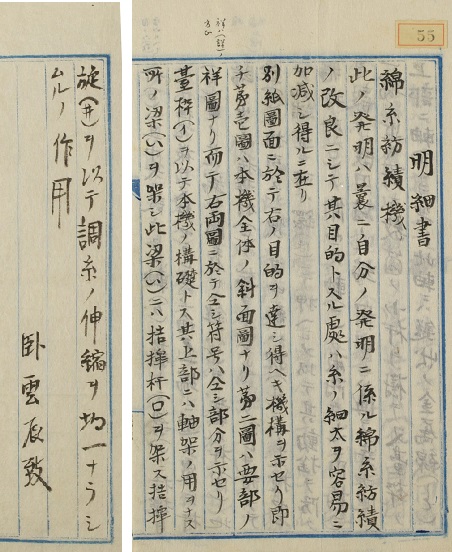 55
明細書
綿糸紡績機
此ノ発明ハ曩ニ自分ノ発明ニ係ル綿糸紡績
ノ改良ニシテ其目的トスル處ハ糸ノ細太ヲ容易ニ
加減シ得ルニ在リ
別紙圖面ニ於テ右ノ目的ヲ達シ得ヘキ機構ヲ示セリ即
チ第壱圖ハ本機全体ノ斜面圖ナリ第二圖ハ要部ノ
祥圖ナリ而テ右両圖ニ於テ仝シ符号ハ仝シ部分ヲ示セリ
臺枠(イ)ヲ以テ本機ノ構礎トス其上部ニハ軸架ノ用ヲナス
所ノ梁(い)ヲ架シ此梁(い)ニハ拮桿杆(ロ)ヲ架ス拮桿
旋(井)ヲ以テ調糸ノ伸縮ヲ均一ナラシ
ムルノ作用
臥雲辰致